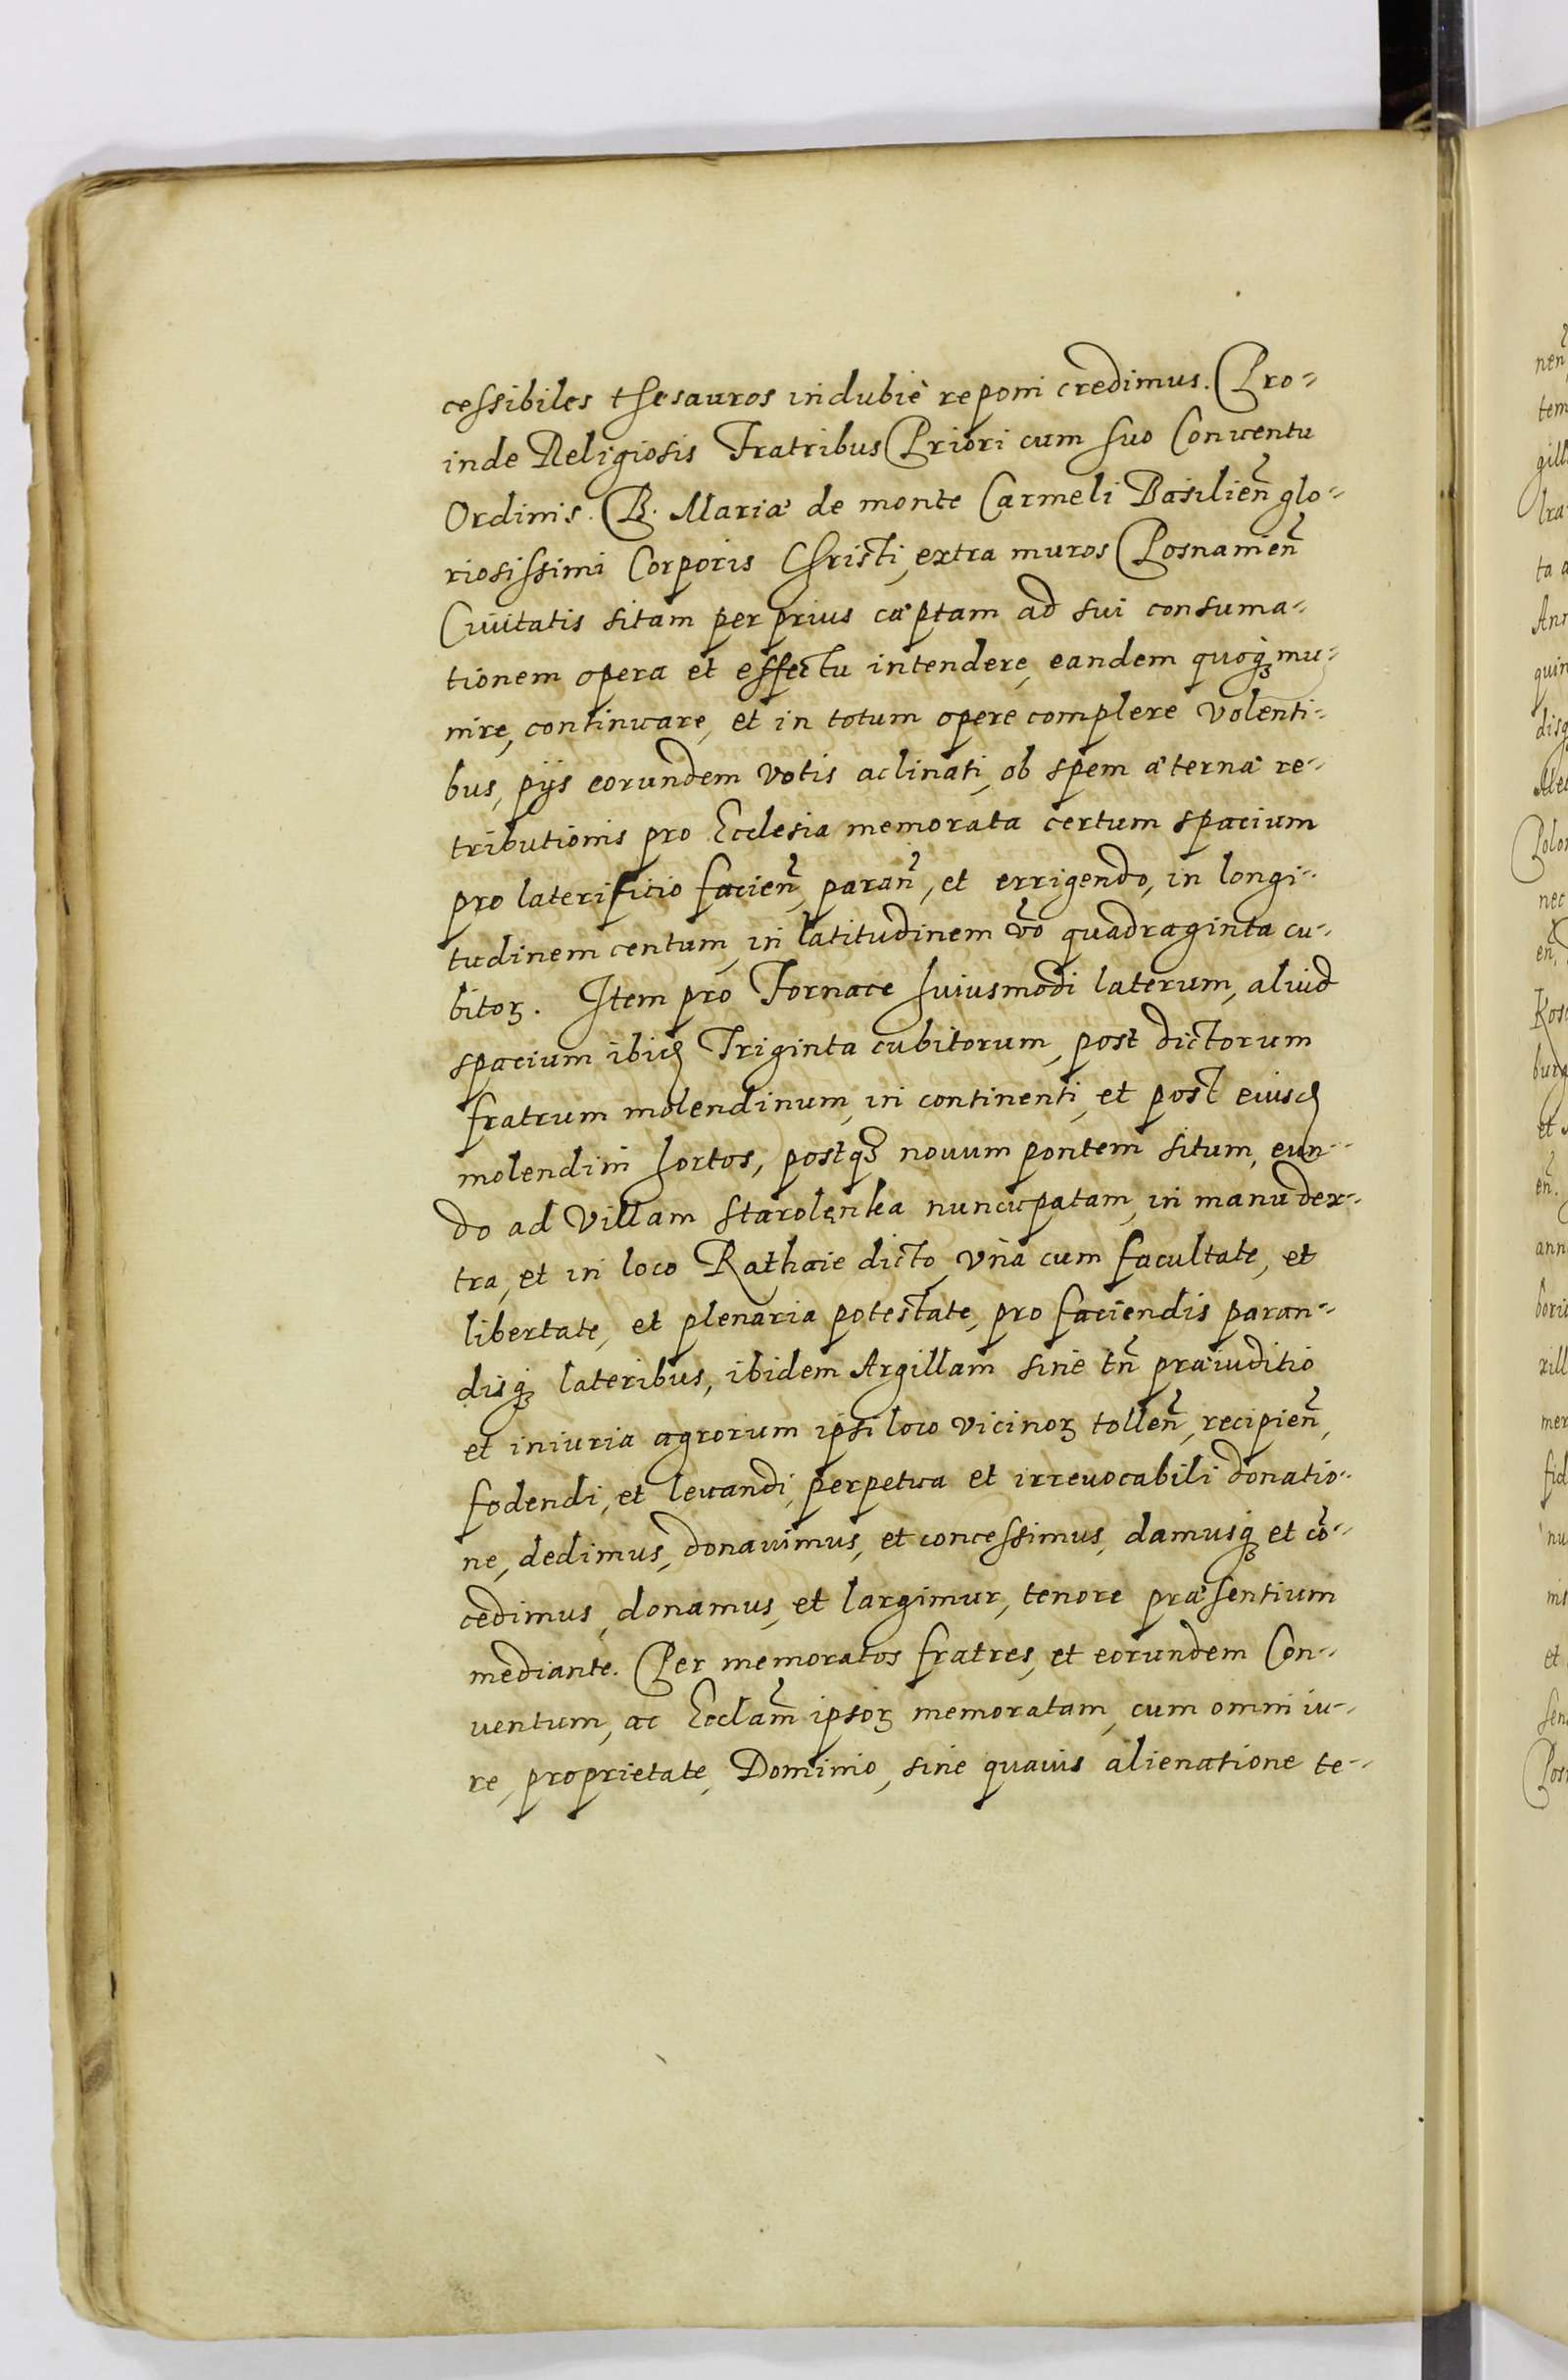 cessibiles thesauros indubiè reponi credimus. Pro-
inde Religiosis Fratribus Priori cum suo Conventu
Ordinis. B. Mariæ de monte Carmeli Basilien̄ glo-
riosissimi Corporis Christi, extra muros Posnanien̄
Civitatis sitam per prius cæptam ad sui consuma-
tionem opera et effectu intendere, eandem quoqꝫ mu-
nire, continuare, et in totum opere complere volenti-
bus, pijs eorundem votis aclinati, ob spem æternæ re-
tributionis pro Ecclesia memorata certum spacium
pro laterificio facien̄, paran̄, et errigendo, in longi-
tudinem centum, in latitudinem v̄o quadraginta cu-
bitoꝝ. Item pro Fornace huiusmodi laterum, aliud
spacium ibiḍ Triginta cubitorum, post dictorum
fratrum molendinum, in continenti, et post eiusḍ
molendini hortos, postqꝫ novum pontem situm, eun-
do ad Villam Starolęnka nuncupatam, in manu dex-
tra, et in loco Rathaie dicto, vna cum facultate, et
libertate, et plenaria potestate, pro faciendis paran-
disqꝫ lateribus, ibidem Argillam sine tn̄ præiuditio
et iniuria agrorum ipsi loco vicinoꝝ tollen̄, recipien̄,
fodendi, et levandi, perpetua et irrevocabili donatio-
ne, dedimus, donavimus, et concessimus, damusqꝫ et cō-
cedimus, donamus, et largimur, tenore præsentium
mediante. Per memoratos fratres, et eorundem Con-
uentum, ac Ecclam̄ ipsoꝝ memoratam, cum omni iu-
re, proprietate, Dominio, sine quavis alienatione te-
nen
tem
gill
ta
quin
disq
Polon
nec
en̄,
burg
et
en̄.
ann
xill
mer
fid
et